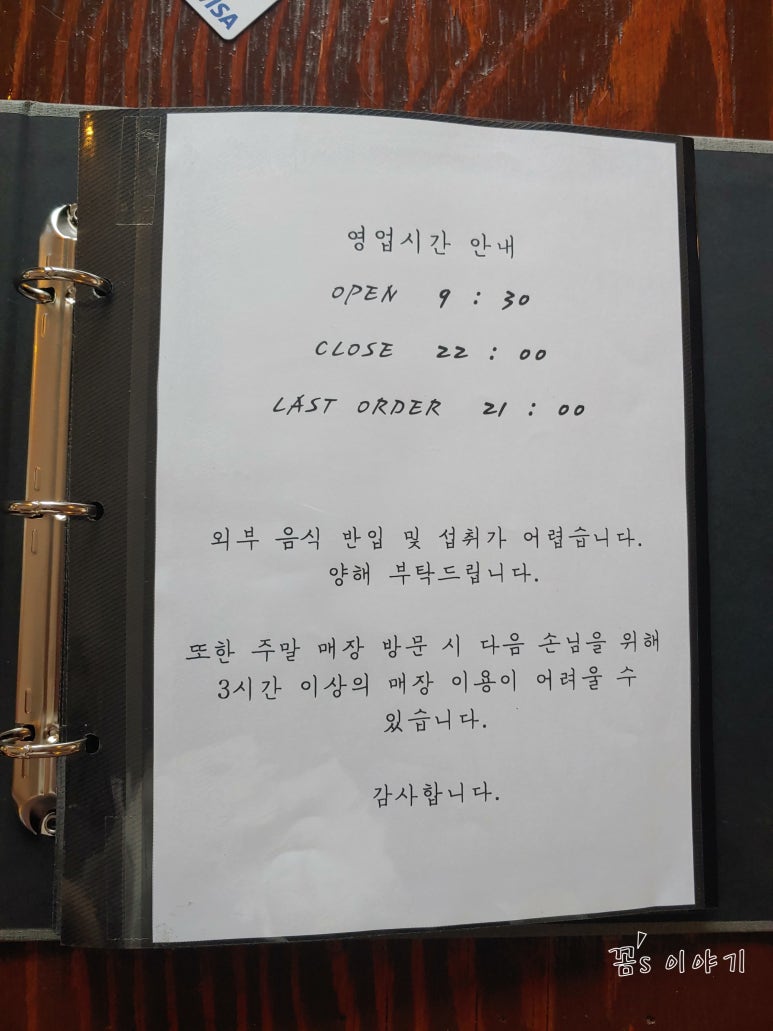 VISA
영업시간 안내
OPEN 9 : 30
CLOSE 22 : 00
LAST ORDER 21 : 00
외부 음식 반입 및 섭취가 어렵습니다.
양해 부탁드립니다.
또한 주말 매장 방문 시 다음 손님을 위해
3시간 이상의 매장 이용이 어려울 수
있습니다.
감사합니다.
꼼's 이야기